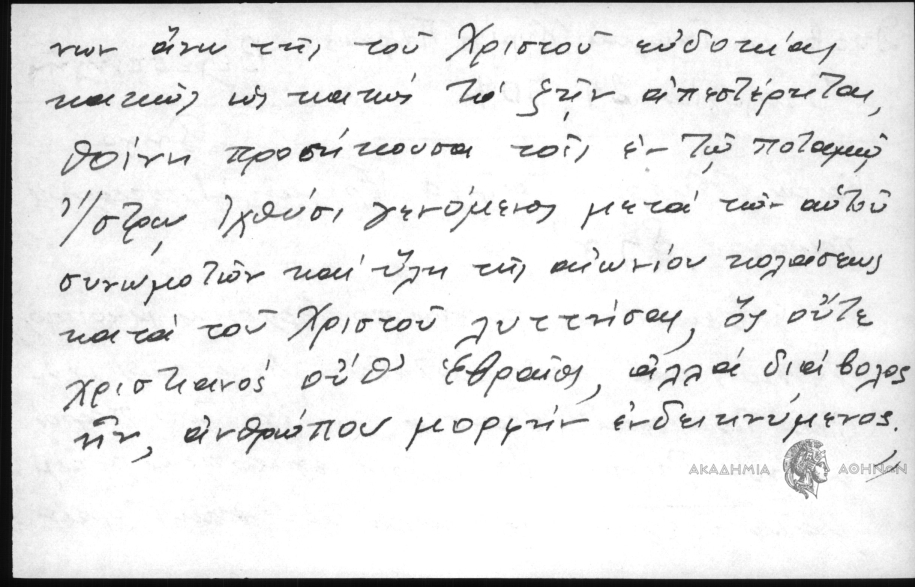 νων ἄνω τῆς τοῦ Χριστοῦ εὐδοκίας
κακῶς ὡς κακὸς τὸ ζῆν ἀπεστέρηται,
θοίνη προσήκουσα τοῖς ἐν τῷ ποταμῷ
Ἴστρῳ ἰχθύσι γενόμενος μετὰ τῶν αὐτοῦ
συνωμοτῶν καὶ ὕλη τῆς αἰωνίου κολάσεως
κατὰ τοῦ Χριστοῦ λυττήσας, ὃς οὔτε
χριστιανὸς οὔθ' Ἑβραῖος, ἀλλὰ διάβολος
ἦν, ἀνθρώπου μορφὴν ἐνδεικνύμενος.
ΑΚΑΔΗΜΙΑ ΑΘΗΝΩΝ